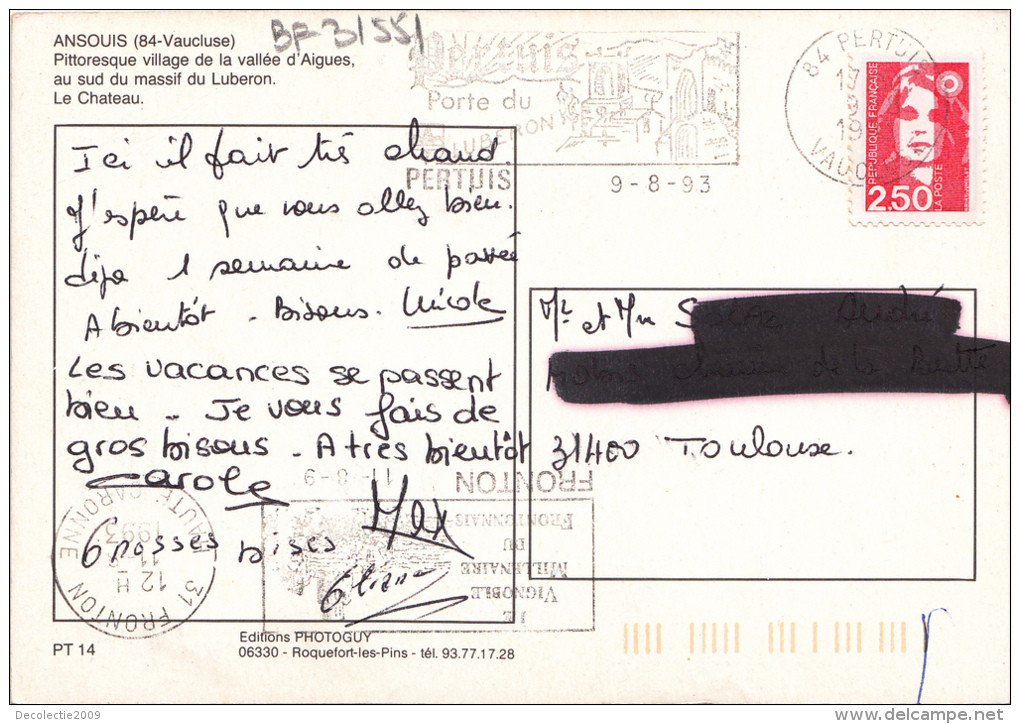 ANSOUIS (84-Vaucluse)
Pittoresque village de la vallée d'Aigues,
au sud du massif du Luberon.
Le Chateau.
BF31551
Pertuis
Porte du
LUBERON
PERTUIS
9-8-93
84 PERTUIS
17
9
19
VAUCLUSE
RÉPUBLIQUE FRANÇAISE
2,50
LA POSTE
Ici il fait très chaud.
J'espère que vous allez bien.
déja 1 semaine de passée
A bientôt - Bisous. Nicole
Les vacances se passent
bien - Je vous fais de
gros bisous - A très bientôt
Carole
Max
Grosses bises
Éliane
Mr et Mm
31400 Toulouse.
FRONTON
11-8-9
LE
VIGNOBLE
MILLENAIRE
DU
FRONTONNAIS
31 FRONTON
12 H
11
1993
HAUTE GARONNE
PT 14
Editions PHOTOGUY
06330 - Roquefort-les-Pins - tél. 93.77.17.28
Decolectie2009
www.delcampe.net